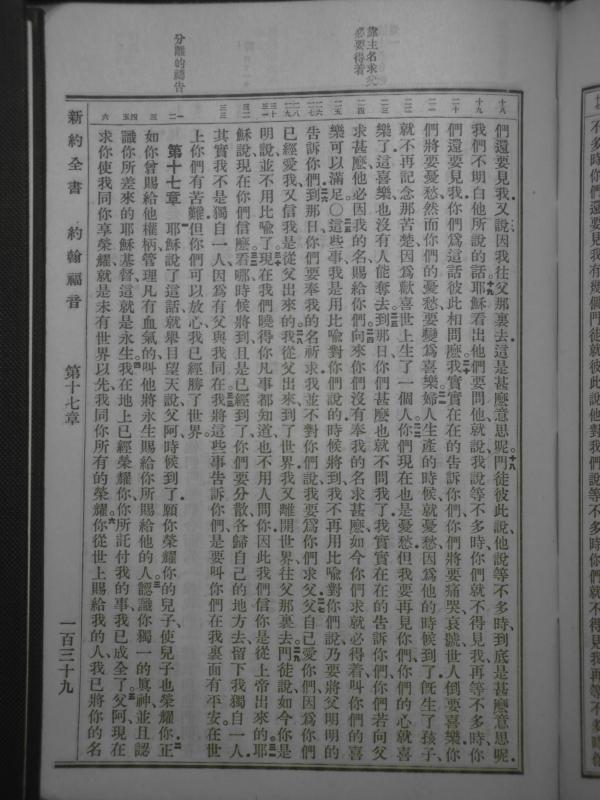 靠主名求父
必要得着
分離的禱告
十八
十九
二十
二一
二二
二三
二四
二五
二六
二七
二八
二九
三十
三一
三二
三三
一
二
三
四
五
六
們還要見我又說因我往父那裏去這是甚麼意思呢門徒彼此說他說等不多時到底是甚麼意思呢
我們不明白他所說的話耶穌看出他們要問他就說我說等不多時你們就不得見我再等不多時你
們還要見我你們爲這話彼此相問麼我實實在在的告訴你們你們將要痛哭哀號世人倒要喜樂你
們將要憂愁然而你們的憂愁要變爲喜樂婦人生產的時候就憂愁因爲他的時候到了旣生了孩子
就不再記念那苦楚因爲歡喜世上生了一個人你們現在也是憂愁但我要再見你們你們的心就喜
樂了這喜樂也沒有人能奪去到那日你們甚麼也就不問我了我實實在在的告訴你們你們若向父
求甚麼他必因我的名賜給你們向來你們沒有奉我的名求甚麼如今你們求就必得着叫你們的喜
樂可以滿足〇這些事我是用比喻對你們說的時候將到我不再用比喻對你們說乃要將父明明的
告訴你們到那日你們要奉我的名祈求我並不對你們說我要爲你們求父父自己愛你們因爲你們
已經愛我又信我是從父出來的我從父出來到了世界我又離開世界往父那裏去門徒說如今你是
明說並不用比喻了現在我們曉得你凡事都知道也不用人問你因此我們信你是從上帝出來的耶
穌說現在你們信麼看哪時候將到且是已經到了你們要分散各歸自己的地方去留下我獨自一人
其實我不是獨自一人因爲有父與我同在我將這些事告訴你們是要叫你們在我裏面有平安在世
上你們有苦難但你們可以放心我已經勝了世界
第十七章 耶穌說了這話就舉目望天說父阿時候到了願你榮耀你的兒子使兒子也榮耀你正
如你曾賜給他權柄管理凡有血氣的叫他將永生賜給你所賜給他的人認識你獨一的眞神並且認
識你所差來的耶穌基督這就是永生我在地上已經榮耀你你所託付我的事我已成全了父阿現在
求你使我同你享榮耀就是未有世界以先我同你所有的榮耀你從世上賜給我的人我已將你的名
新約全書 約翰福音 第十七章 一百三十九